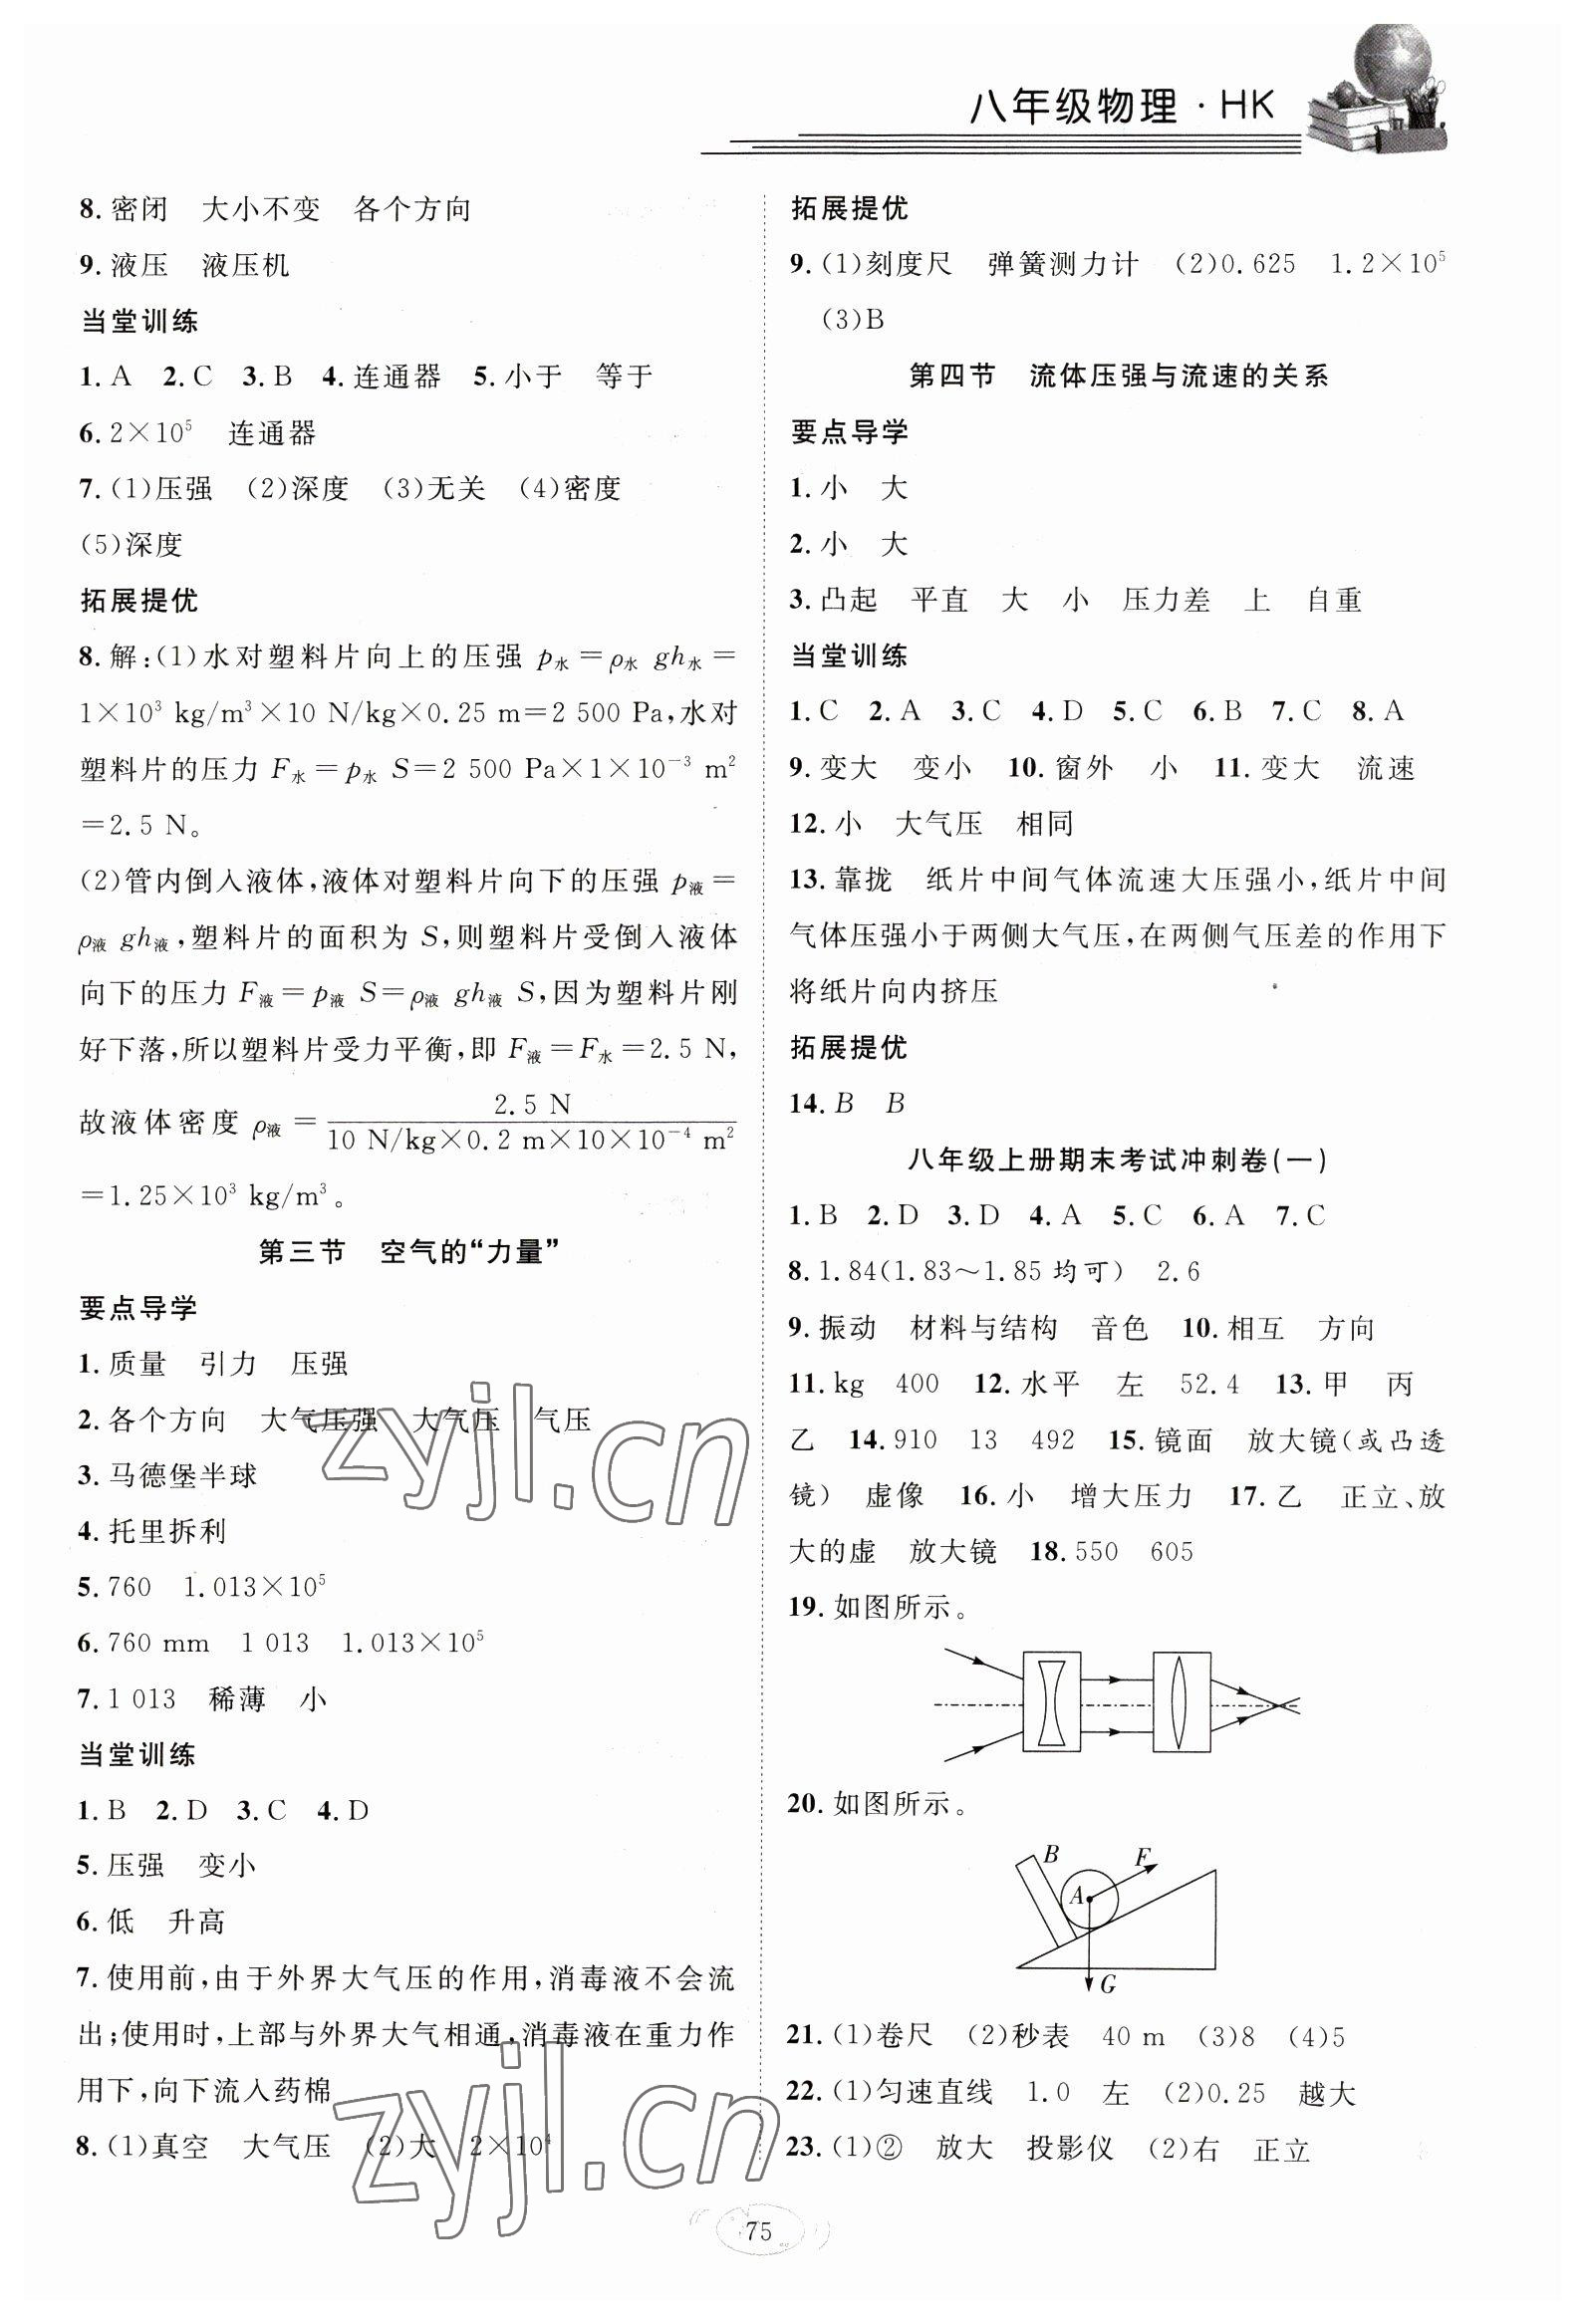 八年级物理·HK
8.密闭 大小不变 各个方向
9.液压 液压机
当堂训练
1.A 2.C 3.B 4.连通器 5.小于 等于
6.2×10⁵ 连通器
7.(1)压强 (2)深度 (3)无关 (4)密度
(5)深度
拓展提优
8.解:(1)水对塑料片向上的压强 p水=ρ水 gh水=
1×10³ kg/m³×10 N/kg×0.25 m=2 500 Pa,水对
塑料片的压力 F水=p水 S=2 500 Pa×1×10⁻³ m²
=2.5 N。
(2)管内倒入液体,液体对塑料片向下的压强 p液=
ρ液 gh液,塑料片的面积为 S,则塑料片受倒入液体
向下的压力 F液=p液 S=ρ液 gh液 S,因为塑料片刚
好下落,所以塑料片受力平衡,即 F液=F水=2.5 N,
故液体密度 ρ液=2.5 N/(10 N/kg×0.2 m×10×10⁻⁴ m²)
=1.25×10³ kg/m³。
第三节 空气的“力量”
要点导学
1.质量 引力 压强
2.各个方向 大气压强 大气压 气压
3.马德堡半球
4.托里拆利
5.760 1.013×10⁵
6.760 mm 1 013 1.013×10⁵
7.1 013 稀薄 小
当堂训练
1.B 2.D 3.C 4.D
5.压强 变小
6.低 升高
7.使用前,由于外界大气压的作用,消毒液不会流
出;使用时,上部与外界大气相通,消毒液在重力作
用下,向下流入药棉
8.(1)真空 大气压 (2)大 2×10⁴
拓展提优
9.(1)刻度尺 弹簧测力计 (2)0.625 1.2×10⁵
(3)B
第四节 流体压强与流速的关系
要点导学
1.小 大
2.小 大
3.凸起 平直 大 小 压力差 上 自重
当堂训练
1.C 2.A 3.C 4.D 5.C 6.B 7.C 8.A
9.变大 变小 10.窗外 小 11.变大 流速
12.小 大气压 相同
13.靠拢 纸片中间气体流速大压强小,纸片中间
气体压强小于两侧大气压,在两侧气压差的作用下
将纸片向内挤压
拓展提优
14.B B
八年级上册期末考试冲刺卷(一)
1.B 2.D 3.D 4.A 5.C 6.A 7.C
8.1.84(1.83～1.85 均可) 2.6
9.振动 材料与结构 音色 10.相互 方向
11.kg 400 12.水平 左 52.4 13.甲 丙
乙 14.910 13 492 15.镜面 放大镜(或凸透
镜) 虚像 16.小 增大压力 17.乙 正立、放
大的虚 放大镜 18.550 605
19.如图所示。
20.如图所示。
B
F
A
G
21.(1)卷尺 (2)秒表 40 m (3)8 (4)5
22.(1)匀速直线 1.0 左 (2)0.25 越大
23.(1)② 放大 投影仪 (2)右 正立
75
zyjl.cn
zyjl.cn